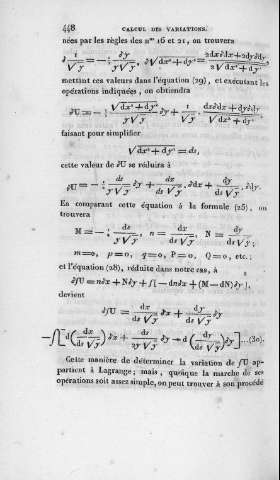 448 CALCUL DES VARIATIONS.
nées par les règles des nos 16 et 21, on trouvera
δ 1/√y = −½ δy/(y√y), δ√(dx²+dy²) = (2dxδdx+2dyδdy)/(2√(dx²+dy²)),
mettant ces valeurs dans l'équation (29), et exécutant les
opérations indiquées, on obtiendra
δU = −½ √(dx²+dy²)/(y√y) δy + 1/√y · (dxδdx+dyδdy)/√(dx²+dy²),
faisant pour simplifier
√(dx²+dy²) = ds,
cette valeur de δU se réduira à
δU = −½ ds/(y√y) δy + dx/(ds√y) · δdx + dy/(ds√y) · δdy.
En comparant cette équation à la formule (25), on
trouvera
M = −½ ds/(y√y), n = dx/(ds√y), N = dy/(ds√y);
m=0, p=0, q=0, P=0, Q=0, etc.;
et l'équation (28), réduite dans notre cas, à
δ∫U = nδx + Nδy + ∫[−dnδx + (M−dN)δy],
devient
δ∫U = dx/(ds√y) δx + dy/(ds√y) δy
−∫[d(dx/(ds√y)) δx + ds/(2y√y) δy + d(dy/(ds√y)) δy]...(30).
Cette manière de déterminer la variation de ∫U ap-
partient à Lagrange; mais, quoique la marche de ses
opérations soit assez simple, on peut trouver à son procédé